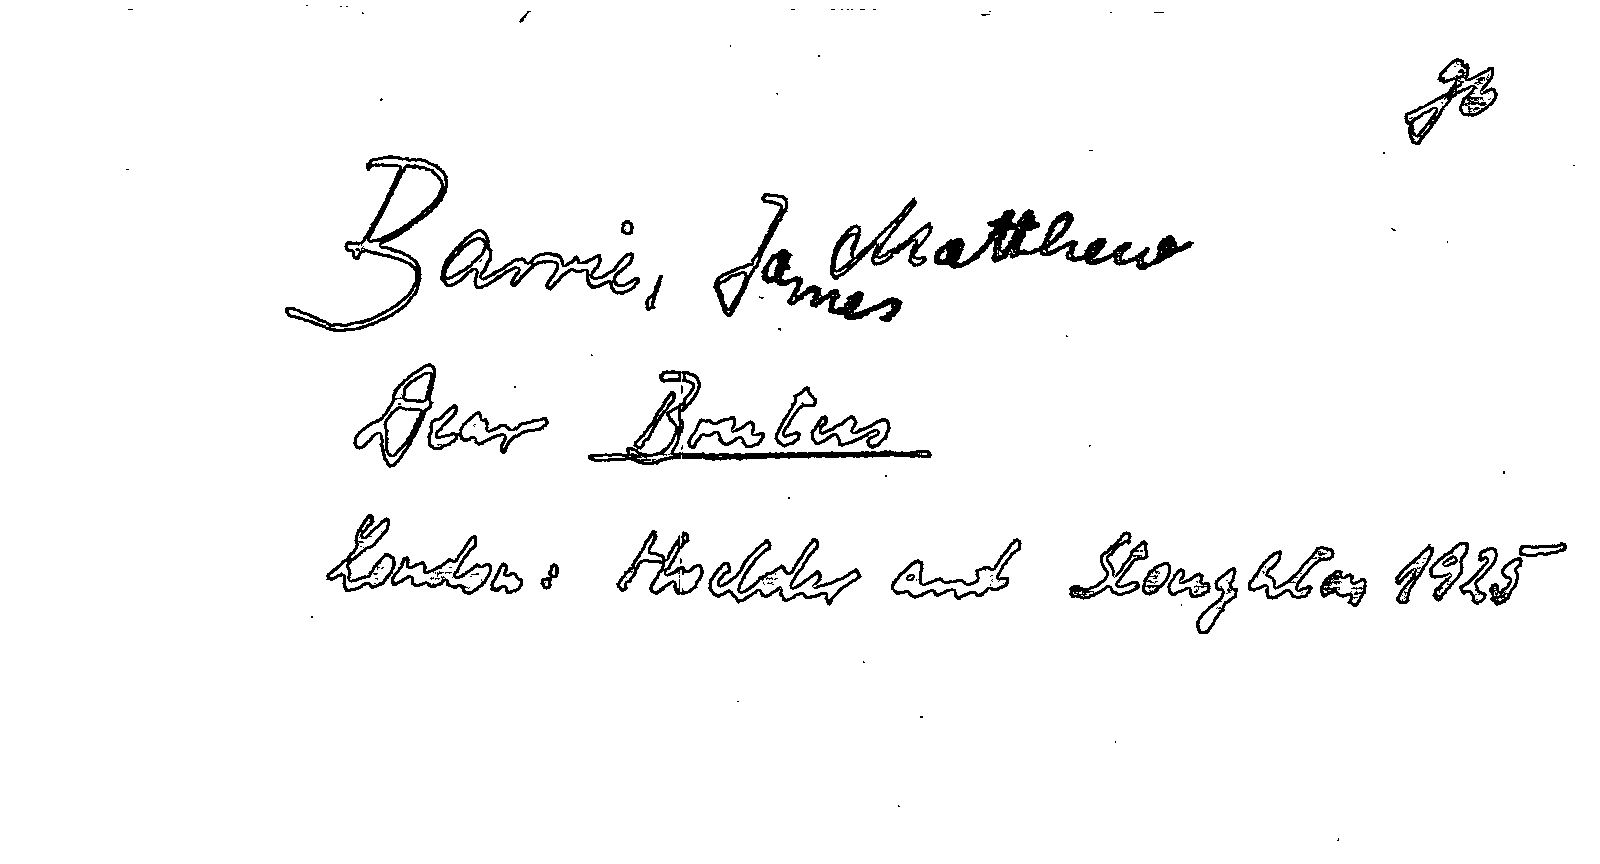 Barrie, James Matthew
Dear Brutus
London: Hodder and Stoughton 1925